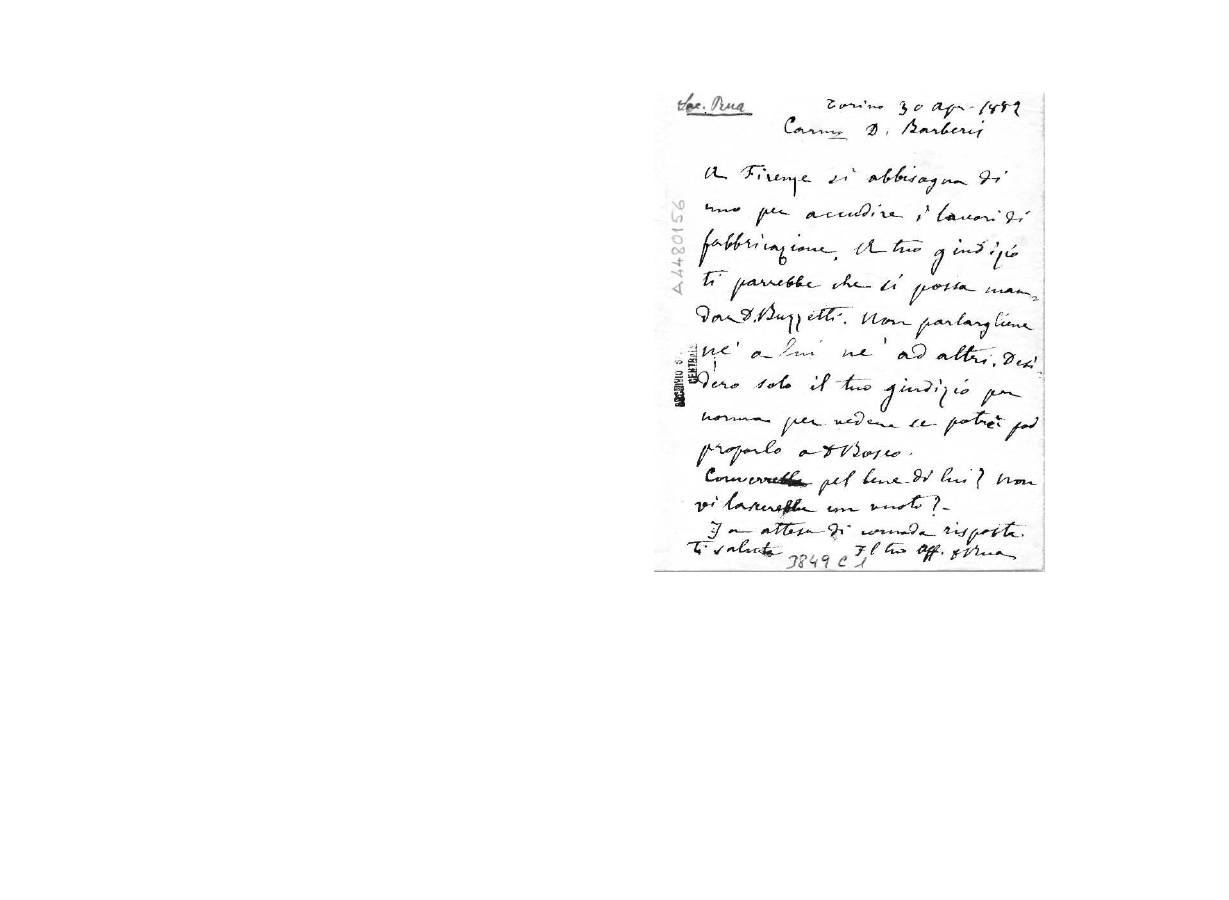 Sac. Rua
Torino 30 Apr. 1882
Carmo D. Barberis
A Firenze si abbisogna di
uno per accudire i lavori di
fabbricazione. A tuo giudizio
ti parrebbe che si possa man-
dar D. Buzzetti. Non parlargliene
nè a lui nè ad altri. Desi-
dero solo il tuo giudizio per
norma per vedere se potrei poi
proporlo a D Bosco.
Converrebbe pel bene di lui? Non
vi lascerebbe un vuoto?-
In attesa di comoda risposta
ti saluto Il tuo Aff. D Rua
A4480156
CENTRALE
3849 C 1